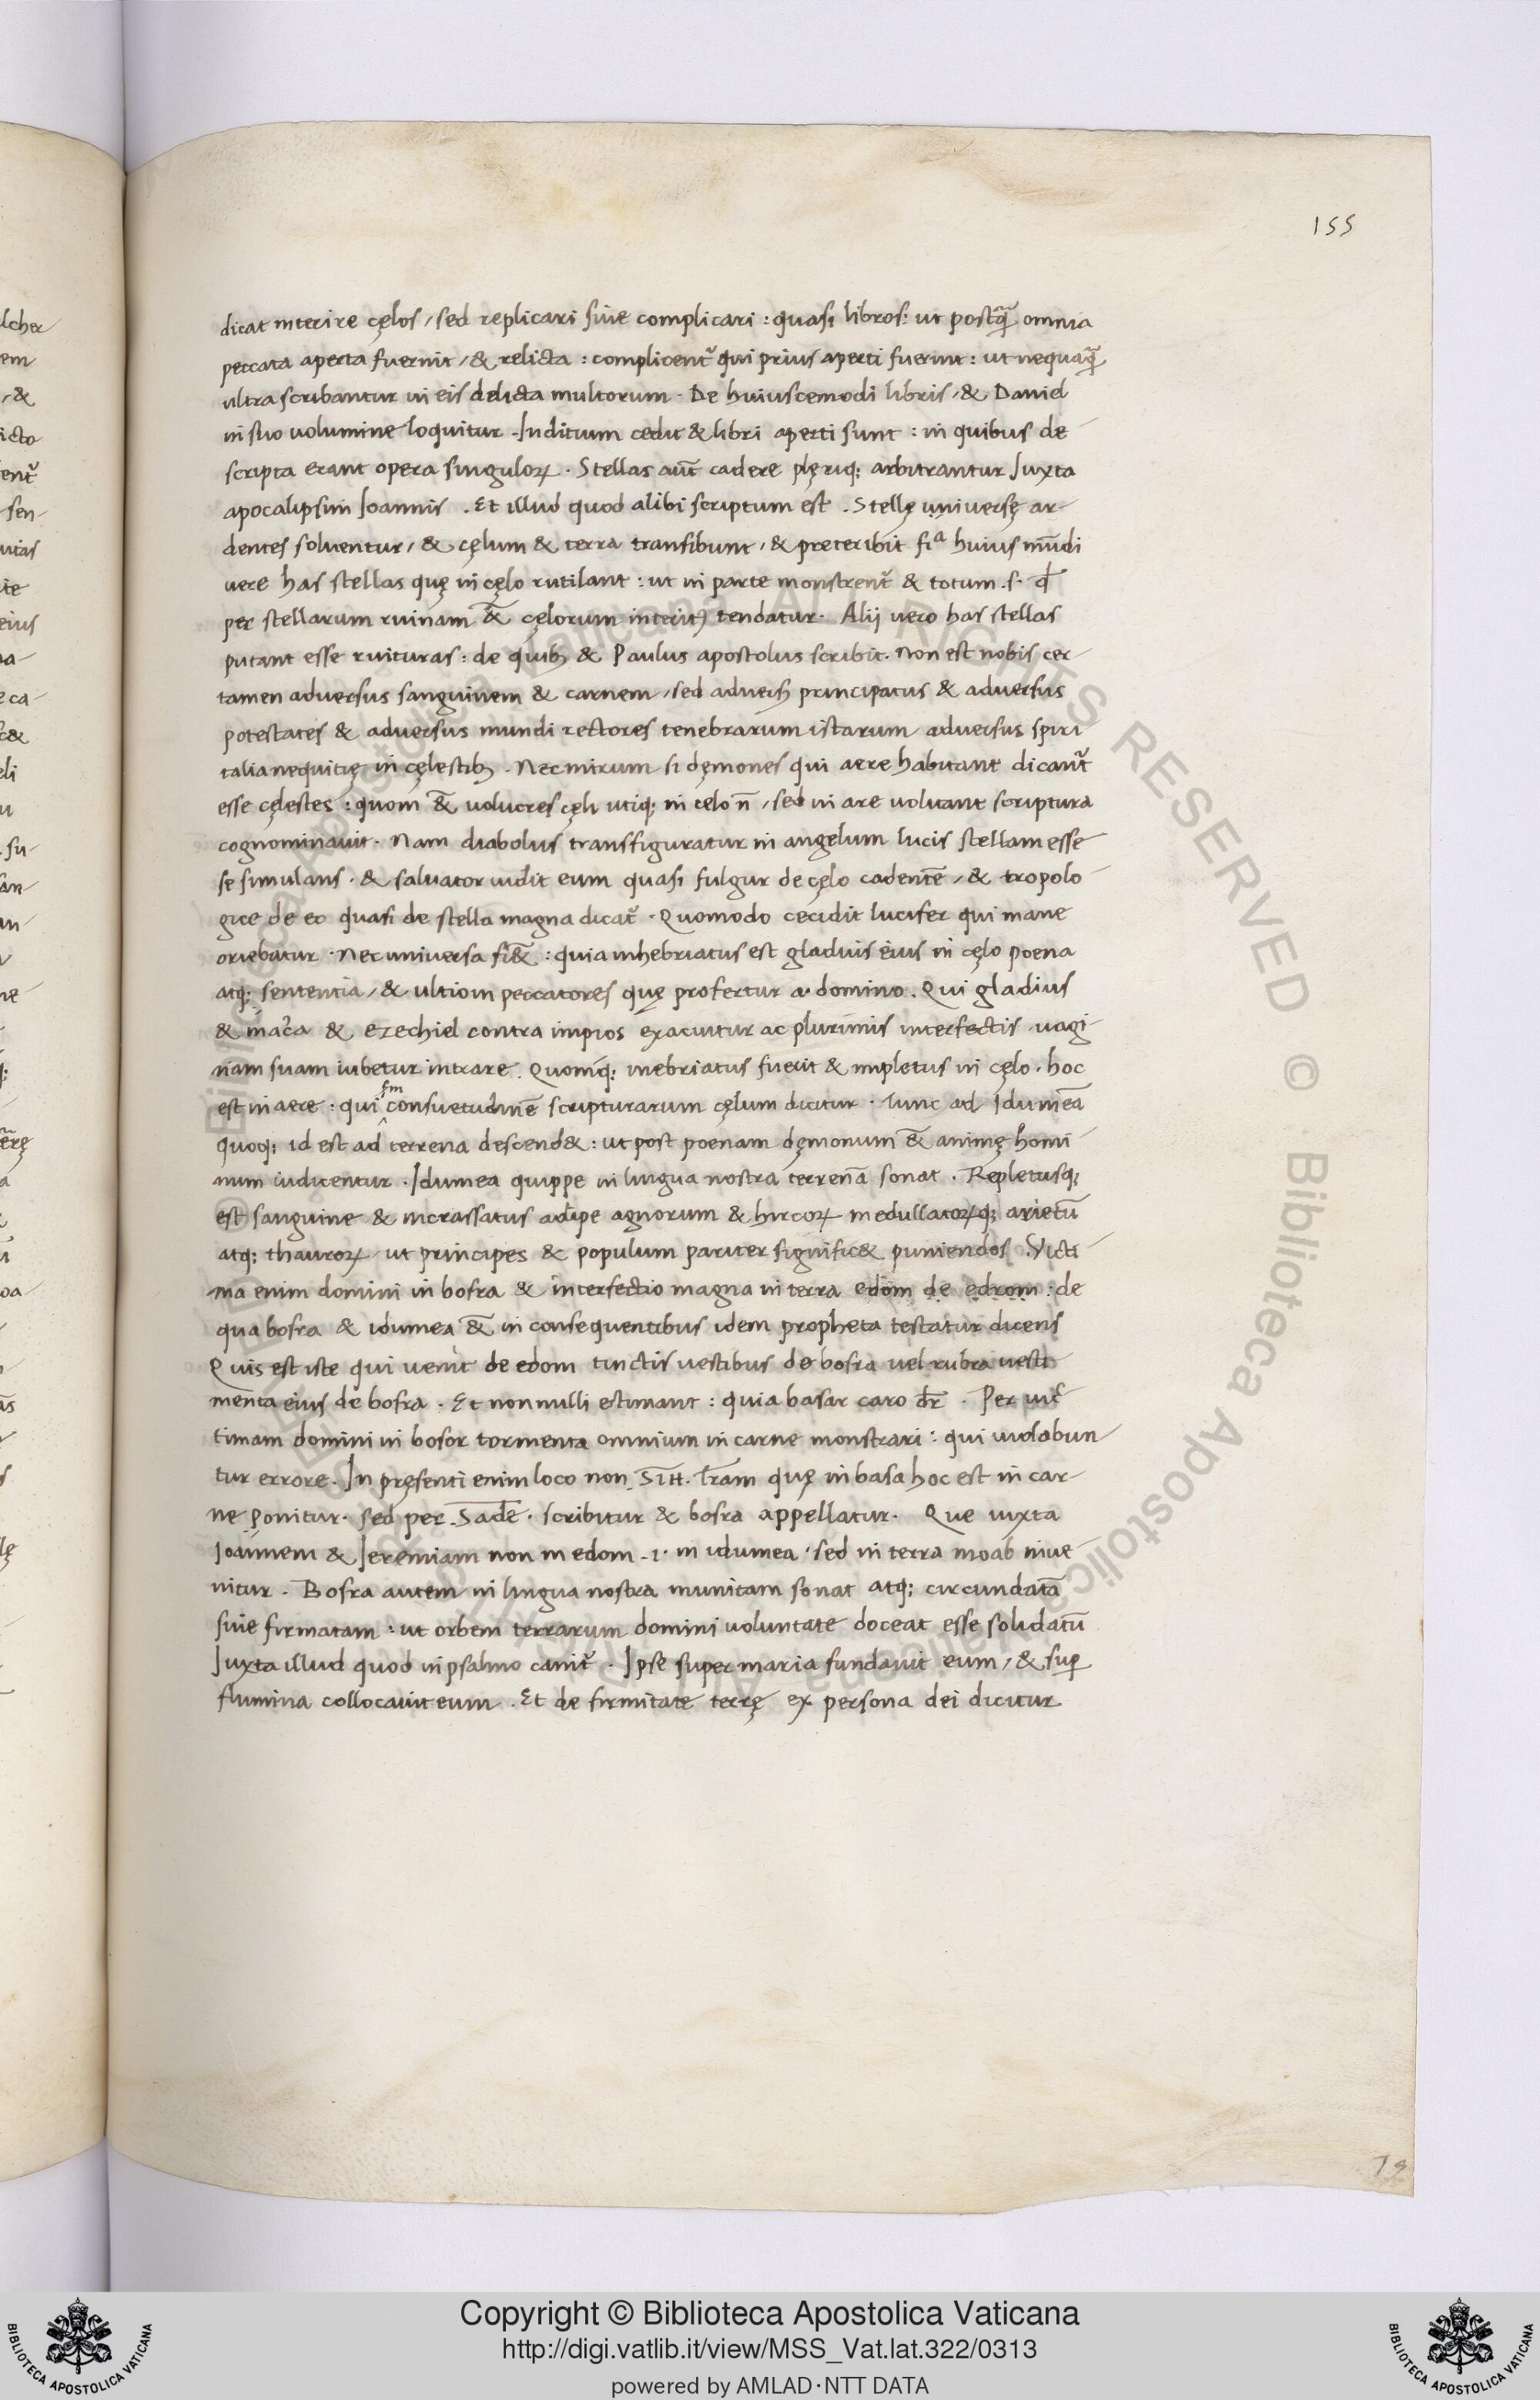 155
dicat interire cęlos / sed replicari siue complicari : quasi libros : ut postq̃ omnia
peccata aperta fuerint / & relicta : complicent᷑ qui prius aperti fuerint : ut nequaq̃
ultra scribantur in eis delicta multorum · De huiuscemodi libris / & Daniel
in suo uolumine loquitur . Iuditium cedit & libri aperti sunt : in quibus de
scripta erant opera singuloꝝ . Stellas aut̃ cadere plęriq; arbitrantur Iuxta
apocalipsim Ioannis . Et illud quod alibi scriptum est . Stellę uniuersę ar-
dentes soluentur / & cęlum & terra transibunt / & preteribit fiª huius mũdi
uere has stellas quę in cęlo rutilant : ut in parte monstrent᷑ & totum .s. qđ
per stellarum ruinam &̃ cęlorum interitꝰ tendatur . Alij uero has stellas
putant esse ruituras : de quibꝫ & Paulus apostolus scribit . Non est nobis cer
tamen aduersus sanguinem & carnem / sed aduersꝰ principatus & aduersus
potestates & aduersus mundi rectores tenebrarum istarum aduersus spiri
talia nequitię in cęlestibꝫ . Nec mirum si dęmones qui aere habitant dicant᷑
esse cęlestes : quom &̃ uolucres cęli utiq; in celo ñ / sed in are uolitant scriptura
cognominauit . Nam diabolus transfiguratur in angelum lucis stellam esse
se simulans . & saluator uidit eum quasi fulgur de cęlo cadentẽ / & tropolo
gice de eo quasi de stella magna dicat᷑ . Quomodo cecidit lucifer qui mane
oriebatur . Nec uniuersa fi&̃ : quia inhebriatus est gladius eius in cęlo poena
atq; sententia / & ultiom peccatores quę profertur a domino . Qui gladius
& in aƚca & ezechiel contra impios exacuitur ac plurimis interfectis uagi-
nam suam iubetur intrare . Quomq; inebriatus fuerit & impletus in cęlo . hoc
est in aere : qui ẜm consuetudinẽ scripturarum cęlum dicitur . Tunc ad Idumeã
quoq; id est ad terrena descend& : ut post poenam dęmonum &̃ animę homi
num iudicentur . Idumea quippe in lingua nostra terrenã sonat . Repletusq;
est sanguine & incrassatus adipe agnorum & hircoꝝ medullatoꝝq; arietũ
atq; thauroꝝ ut principes & populum pariter signific& puniendos . Victi
ma enim domini in bosra & interfectio magna in terra edom de edrom : de
qua bosra & idumea &̃ in consequentibus idem propheta testatur dicens
Quis est iste qui uenit de edom tinctis uestibus de bosra uel rubra uesti
menta eius de bosra . Et nonnulli estimant : quia basar caro dr̃ . Per uic
timam domini in bosor tormenta omnium in carne monstrari : qui uiolabun
tur errore . In pręsenti enim loco non SIH . lr̃am quę in basa hoc est in car-
ne ponitur . sed per . Sade . scribitur & bosra appellatur . Que iuxta
Ioannem & Ieremiam non in edom .i. in idumea . sed in terra moab inue
nitur . Bosra autem in lingua nostra munitam sonat atq; circundatã
siue firmatam : ut orbem terrarum domini uoluntate doceat esse solidatũ
Iuxta illud quod in psalmo canit᷑ . Ipse super maria fundauit eum / & suꝑ
flumina collocauit eum . Et de firmitate terrę ex persona dei dicitur
79
Copyright © Biblioteca Apostolica Vaticana
http://digi.vatlib.it/view/MSS_Vat.lat.322/0313
powered by AMLAD·NTT DATA